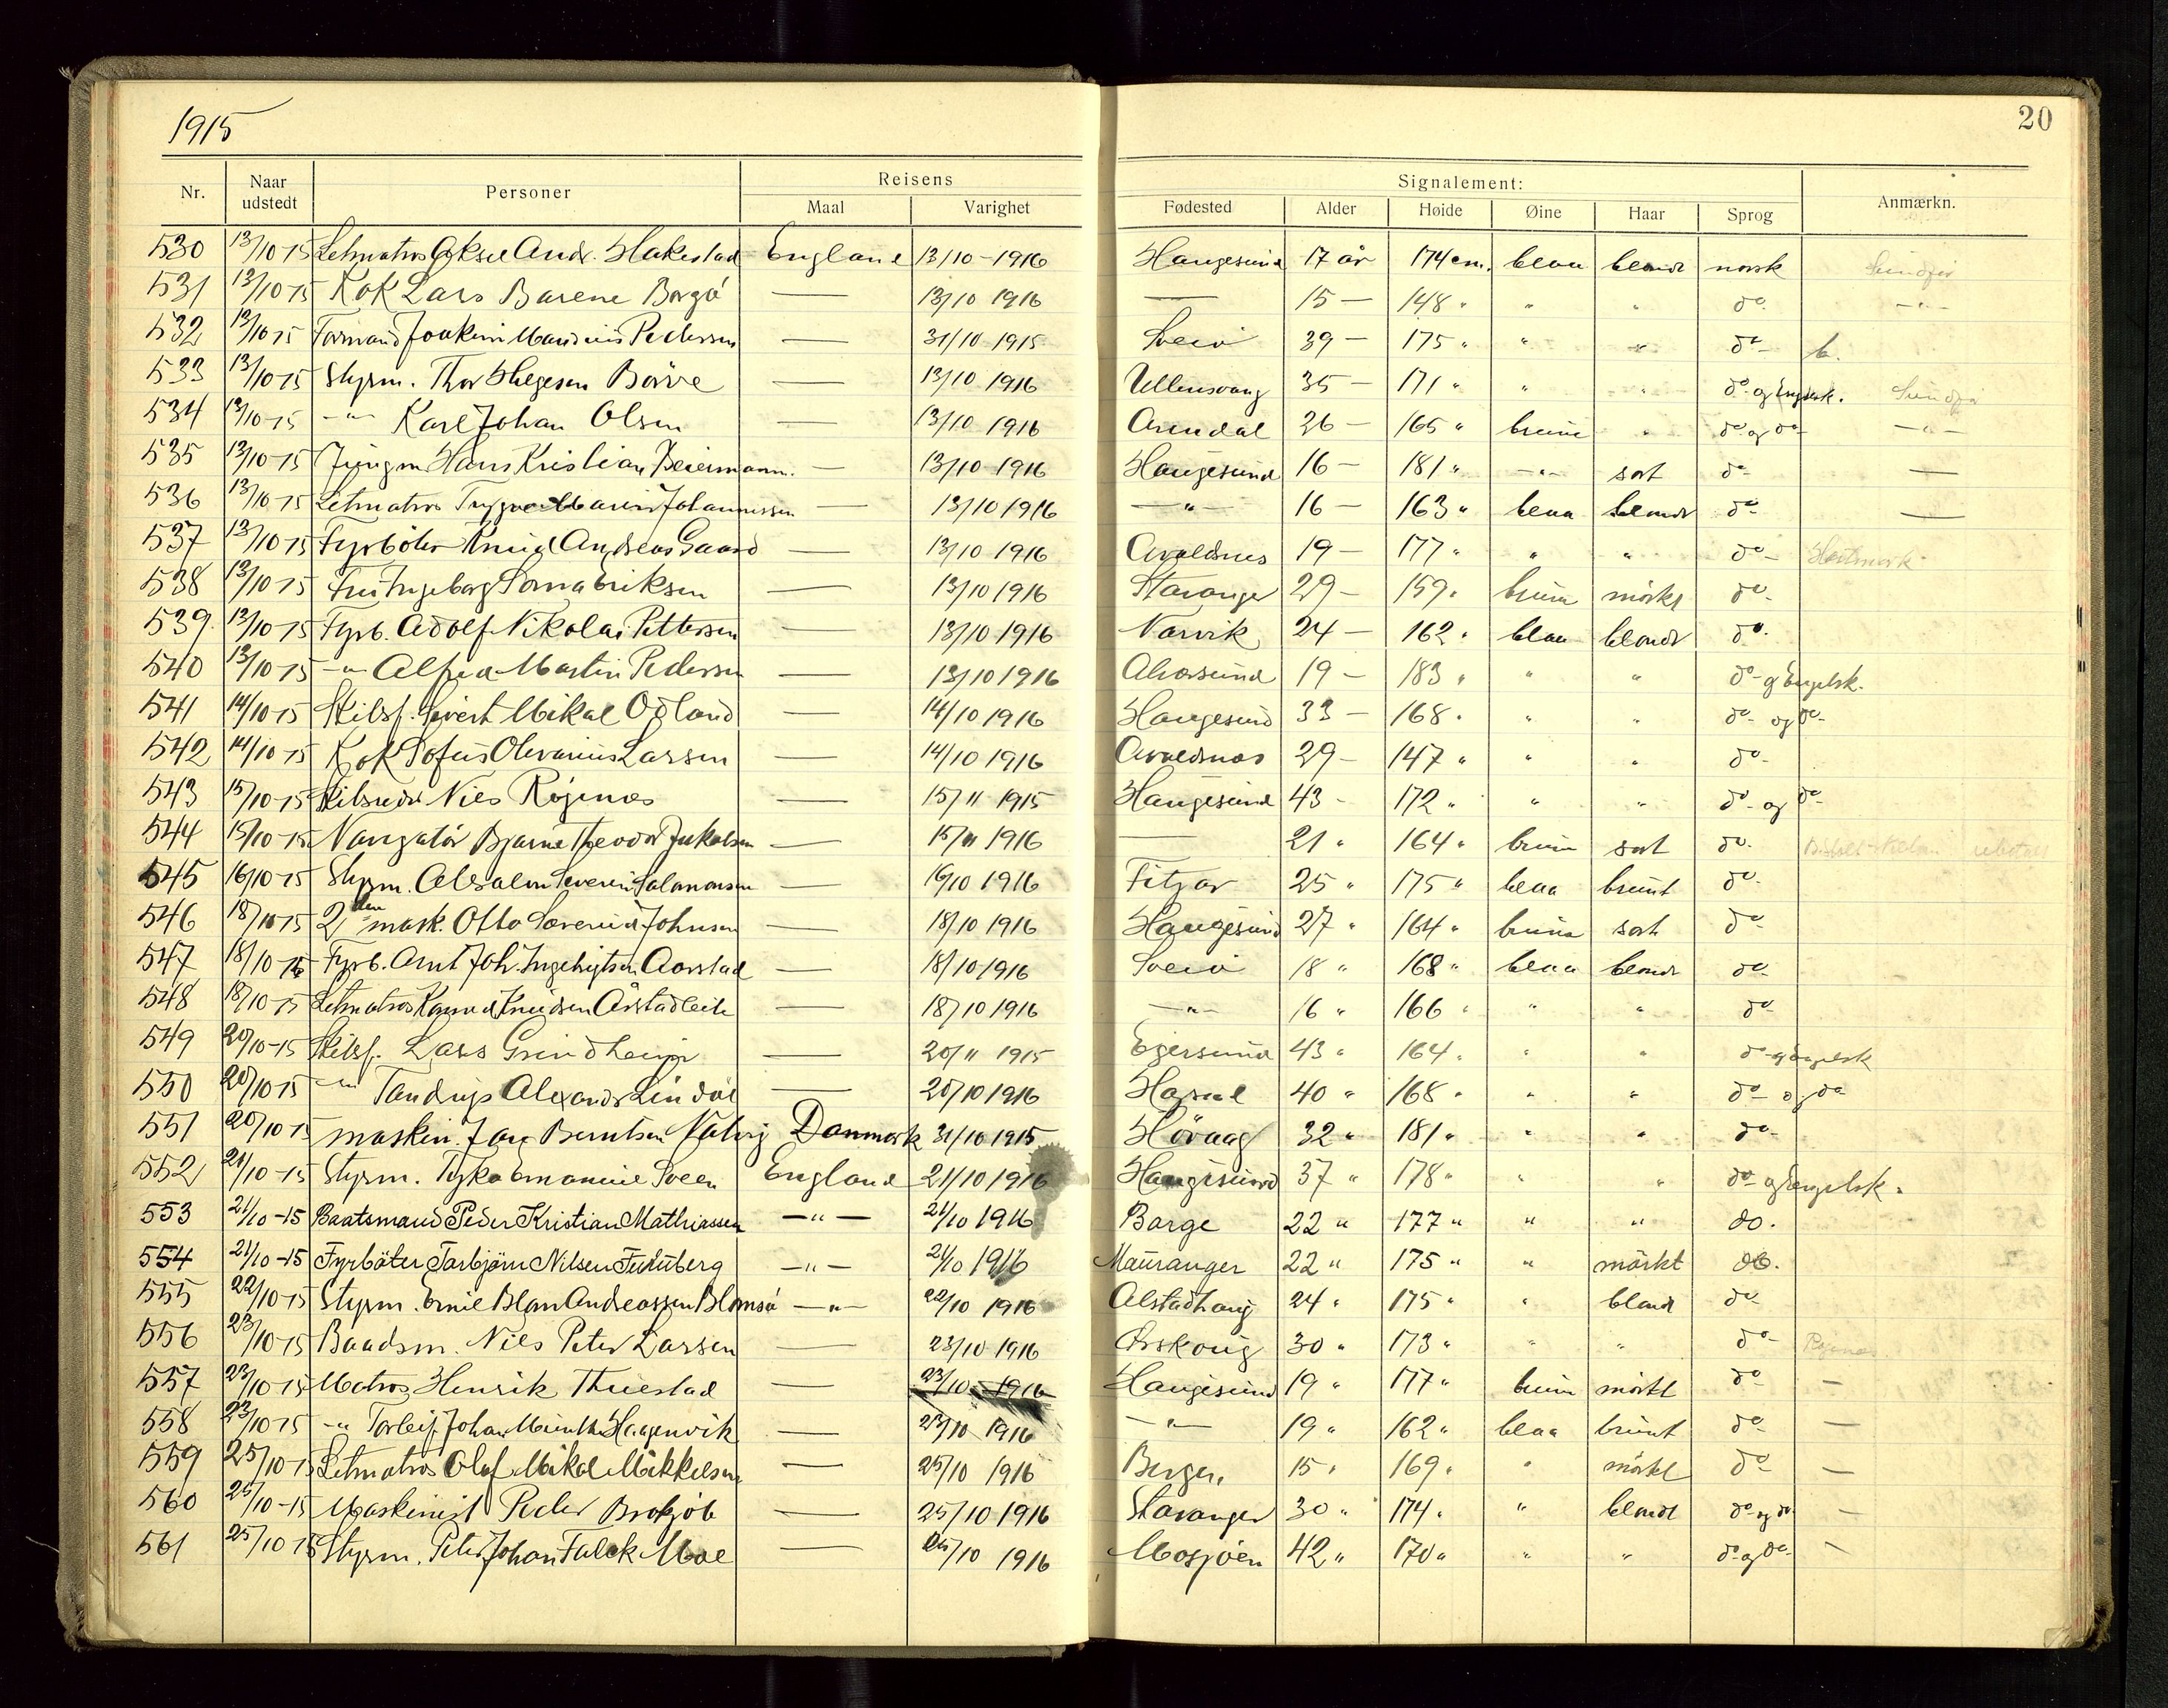 1915
20
Nr. Naar udstedt Personer Reisens Maal Varighet Signalement: Fødested Alder Høide Øine Haar Sprog Anmærkn.
530 13/10-15 Letmatros Aksel Andr. Hakestad England 13/10-1916 Haugesund 17 år 174 cm. blaa blondt norsk
531 13/10-15 Kok Lars Barene Borgø — 13/10 1916 — 15 — 148 " " " do. —"—
532 13/10 15 Formand Joakim Mandius Pedersen — 31/10 1915 Sveio 39 — 175 " " " do- b.
533 13/10-15 Styrm. Thor Helgesen Børve — 13/10 1916 Ullensvang 35 — 171 " " " do- og Engelsk.
534 13/10-15 —"— Karl Johan Olsen — 13/10 1916 Arendal 26 — 165 " brune " do- og do- —"—
535 13/10-15 Jungm Hans Kristian Beiermann. — 13/10-1916 Haugesund 16 — 181 " —"— sort do- —
536 13/10 15 Letmatros Trygve Marin Johannessen — 13/10 1916 —"— 16 — 163 " blaa blondt do- —
537 13/10 15 Fyrböter Knud Andreas Gaard — 13/10 1916 Avaldsnes 19 — 177 " " " do-
538 13/10-15 Fru Ingeborg Lorna Eriksen — 13/10 1916 Stavanger 29 — 159 " brune mörkt do-
539 13/10-15 Fyrb. Adolf Nikolai Pettersen — 13/10-1916 Narvik 24 — 162 " blaa blondt do.
540 13/10-15 —"— Alfred Martin Pedersen — 13/10 1916 Alversund 19 — 183 " " " do- og Engelsk.
541 14/10-15 Skibsf. Sivert Mikal Odland — 14/10 1916 Haugesund 33 — 168 " " " do- og do-
542 14/10 15 Kok Sofus Olevarius Larsen — 14/10 1916 Avaldsnes 29 — 147 " " " do-
543 15/10-15 Skibsreder Niels Röjenes — 15/11 1915 Haugesund 43 - 172 " " " do- og do-
544 15/10-15 Navigatör Bjarne Theodor Jakobsen — 15/11 1916 — 21 " 164 " brune sort do.
545 16/10-15 Styrm. Absalon Severin Salamonsen — 16/10 1916 Fitjar 25 " 175 " blaa brunt do-
546 18/10 15 2den mask. Otto Severin Johnsen — 18/10 1916 Haugesund 27 " 164 " brune sort do-
547 18/10-15 Fyrb. Arnt Joh. Ingebrigtsen Aarstad — 18/10 1916 Sveio 18 " 168 " blaa blondt do-
548 18/10-15 Letmatros Konrad Knudsen Årstadleite — 18/10 1916 —"— 16 " 166 " " " do-
549 20/10-15 Skibsf. Lars Grindheim — 20/11 1915 Egersund 43 " 164 " " " do- og Engelsk
550 20/10 15 —"— Tandrup Alexander Lindöe — 20/10 1916 40 " 168 " " " do- og do-
551 20/10 15 maskin. Jan Berntsen Natvig Danmark 31/10 1915 Hövaag 32 " 181 " " " do-
552 21/10-15 Styrm. Tyko Emanuel Sveen England 21/10 1916 Haugesund 37 " 178 " " " do- og Engelsk.
553 21/10-15 Baatsmand Peder Kristian Mathiassen —"— 21/10 1916 Borge 22 " 177 " " " do.
554 21/10-15 Fyrböter Torbjörn Nilsen Furuberg —"— 21/10 1916 Mauranger 22 " 175 " " mörkt do.
555 22/10-15 Styrm. Emil Blan Andreassen Blomsö —"— 22/10 1916 Alstadhaug 24 " 175 " " blondt do-
556 23/10-15 Baadsm. Niels Peter Larsen — 23/10-1916 Örskoug 30 " 173 " " " do-
557 23/10-15 Matros Henrik Thuestad — 23/10-1916 Haugesund 19 " 177 " brune mörkt do- —
558 23/10-15 —"— Torleif Johan Haagenvik — 23/10 1916 —"— 19 " 162 " blaa brunt do- —
559 25/10-15 Letmatros Olaf Mikal Mikkelsen — 25/10 1916 Bergen 15 " 169 " " mörkt do- —
560 25/10-15 Maskinist Peder — 25/10-1916 Stavanger 30 " 174 " " blondt do- og do- —
561 25/10 15 Styrm. Peter Johan Falck Moe — 25/10 1916 Mosjöen 42 " 170 " " " do- og do- —